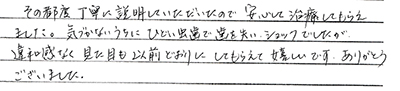 その都度丁寧に説明していただいたので安心して治療してもらえ
ました。気づかないうちにひどい虫歯で歯を失い、ショックでしたが、
違和感なく見た目も以前どおりにしてもらえて嬉しいです。ありがとう
ございました。